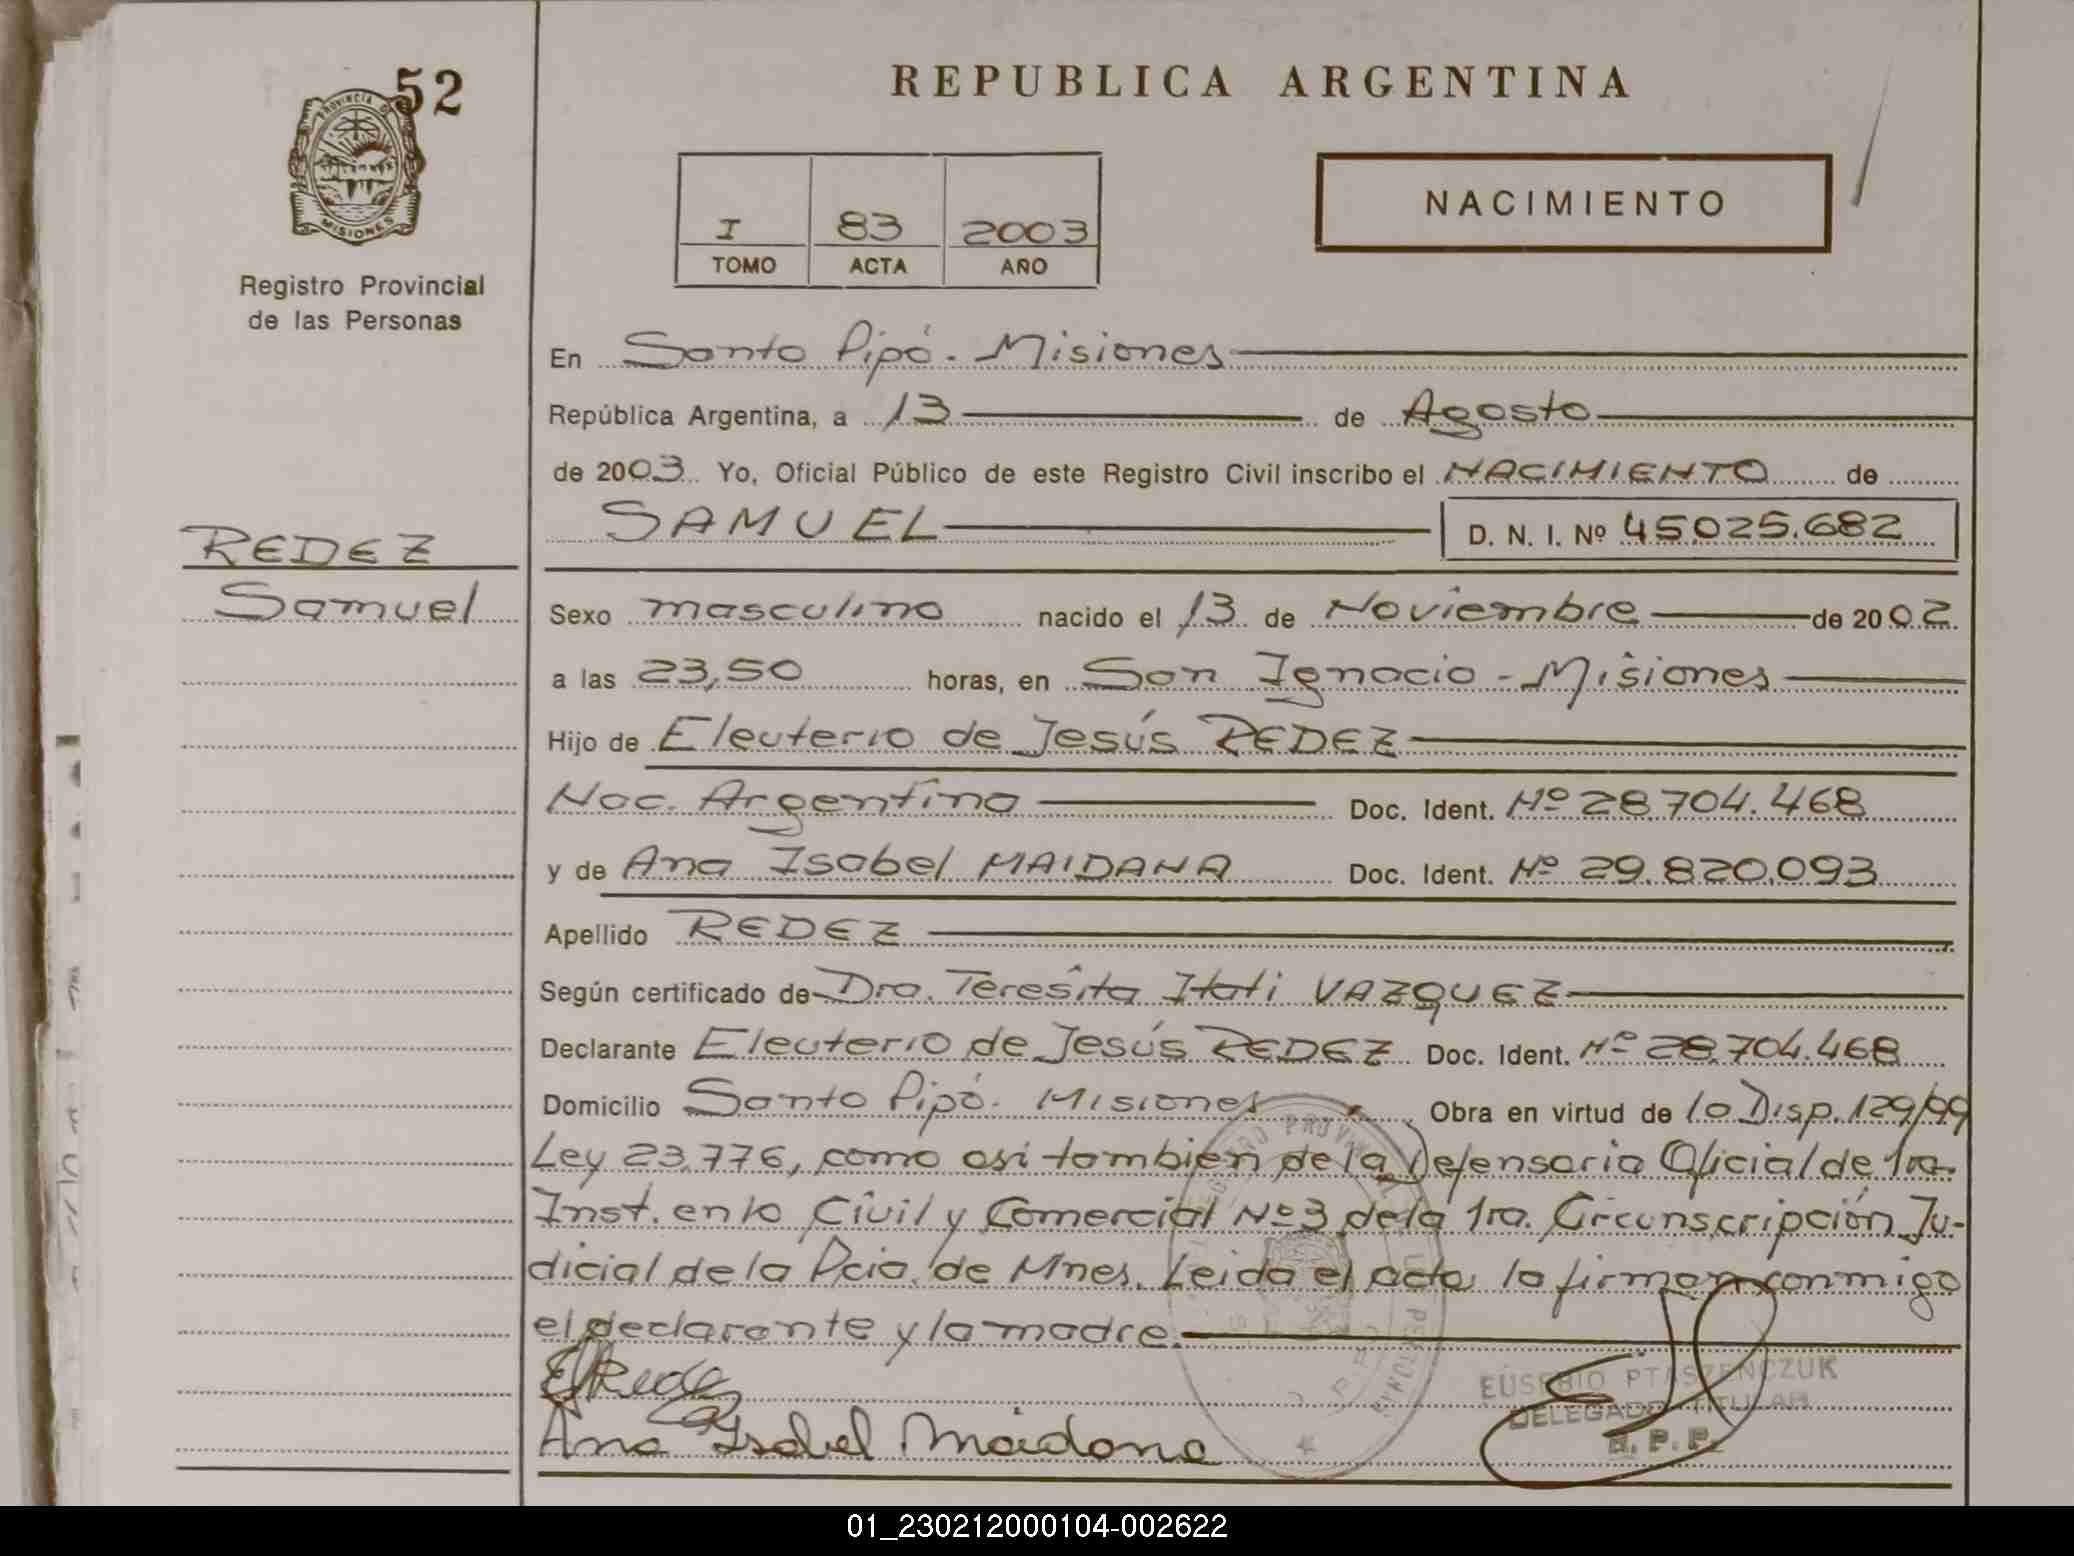 52
PROVINCIA DE
MISIONES
Registro Provincial
de las Personas
REDEZ
Samuel
REPUBLICA ARGENTINA
I 83 2003
TOMO ACTA AÑO
NACIMIENTO
En Santo Pipó - Misiones
República Argentina, a 13 de Agosto
de 2003 Yo, Oficial Público de este Registro Civil inscribo el NACIMIENTO de
SAMUEL D. N. I. Nº 45.025.682
Sexo masculino nacido el 13 de Noviembre de 2002
a las 23,50 horas, en San Ignacio - Misiones
Hijo de Eleuterio de Jesús REDEZ
Nac. Argentina Doc. Ident. Nº 28.704.468
y de Ana Isabel MAIDANA Doc. Ident. Nº 29.820.093
Apellido REDEZ
Según certificado de Dra. Teresita Itati VAZQUEZ
Declarante Eleuterio de Jesús REDEZ Doc. Ident. Nº 28.704.468
Domicilio Santo Pipó - Misiones Obra en virtud de la Disp. 129/99
Ley 23.776, como asi tambien de la Defensoria Oficial de 1ra.
Inst. en lo Civil y Comercial Nº 3 de la 1ra. Circunscripción Ju-
dicial de la Pcia. de Mnes. Leida el acta, la firman conmigo
el declarante y la madre.
Ana Isabel Maidana
EUSEBIO PTASZENCZUK
DELEGADO TITULAR
R. P. P.
01_230212000104-002622